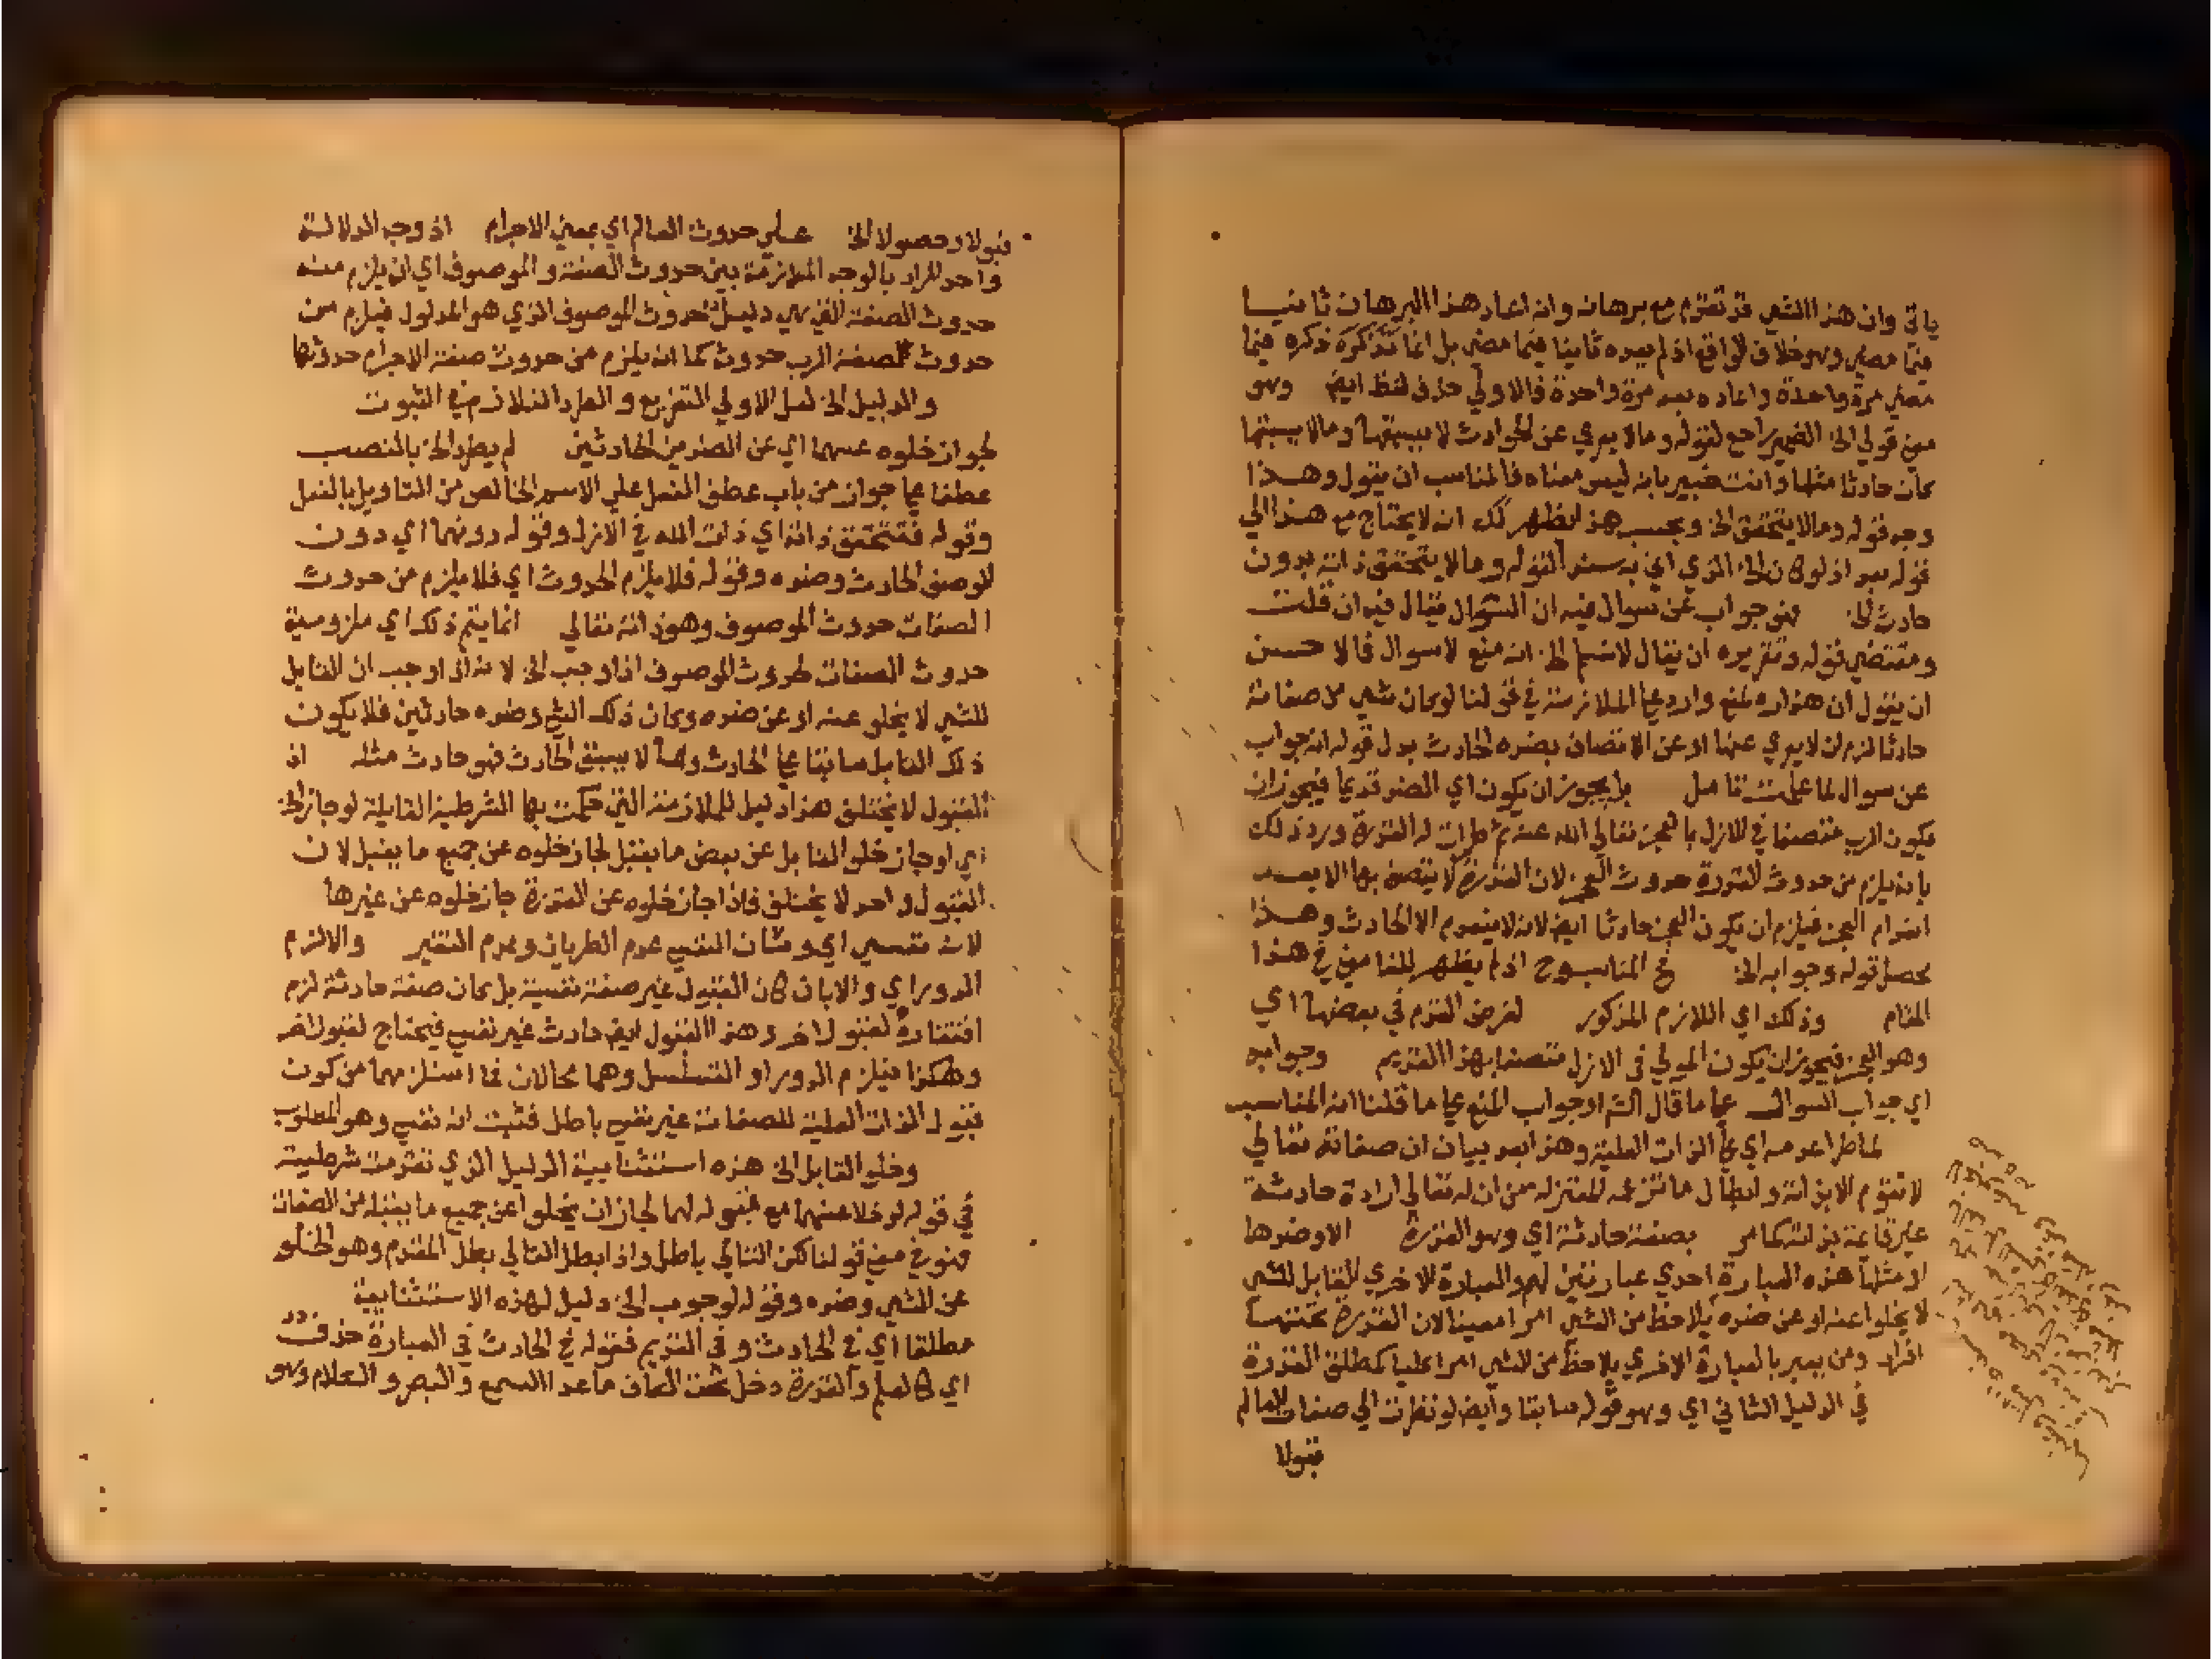 ياتي وان هذا الشي قد تقدم مع برهانه وانه اعاد هذا البرهان ثانيا
فيما مضي وهو خلاف الواقع اذ لم يعده ثانيا فيما مضي بل انما ذكره فيما
مضي مرة واحدة واعاده بعد مرة واحدة فالاولي حذف لفظ ايض وهو
معني قولي الخ الضمير راجع لقوله وما لا يعري عن الحوادث لا يسبقها وما لا يسبقها
كان حادثا مثلها وانت خبير بانه ليس معناه فالمناسب ان يقول وهذا
وجه قوله وما لا يتحقق الخ وبحسب هذا يظهر لك انه لا يحتاج مع هذا الي
قوله بعد اذ لو كان الخ الذي اي به سند القوله وما لا يتحقق ذاته بدون
حادث الخ فهو جواب عن سوال فيه ان السوال يقال فيه ان قلت
ومقتضي قوله وتقريره ان يقال لا نسلم الخ انه منع لا سوال فالاحسن
ان يقول ان هذا منع وارد علي الملازمة في قولنا لو كان شي من صفاته
حادثا لزم ان لا يعري عنها او عن الاتصاف بضده الحادث بدل قوله انه جواب
عن سوال لما علمت تامل بل يجوز ان يكون اي الضد قديما فيجوز ان
يكون الرب متصفا في الازل بالعجز تعالي الله عنه ثم طرات له القدرة ورد ذلك
بانه يلزم من حدوث القدرة حدوث العجز لان القدرة لا يتصف بها الا بعد
انعدام العجز فيلزم ان يكون العجز حادثا ايض لانه لا ينعدم الا الحادث وهذا
محصل قوله وجوابه الخ في المناسب اذ لم يظهر للفا معني في هذا
المقام وذلك اي اللازم المذكور لفرض القدم في بعضها اي
وهو العجز فيجوز ان يكون المولي في الازل متصفا بهذا القديم وجوابه
اي جواب السوال علي ما قال الش او جواب المنع علي ما قلنا انه المناسب
لما طرا عدمه اي علي الذات العلية وهذا بعد بيان ان صفاته تعالي
لا تقوم الا بذاته وابطال ما تزعمه المعتزله من ان له تعالي ارادة حادثة
غير قايمة بذاته كما مر بصفة حادثة اي وهو القدرة الا وضدها
او مثلها هذه العبارة احدي عبارتين لهم والعبارة الاخري القابل للشي
لا يخلوا عنه او عن ضده يلاحظ من الشي امرا معينا لان القدرة تحتها
افراد ومن يعبر بالعبارة الاخري يلاحظ من الشي امرا كليا كمطلق القدرة
في الدليل الثاني اي وهو قوله سابقا وايض لو نظرت الي صفات العالم
قبولا
قبولا وحصولا الخ علي حدوث العالم اي بمعني الاجرام اذ وجه الدلالة
واحد المراد بالوجه الملازمة بين حدوث الصفة والموصوف اي ان يلزم منه
حدوث الصفة التي هي دليل حدوث الموصوف الذي هو المدلول فيلزم من
حدوث صفة الرب حدوث كما انه يلزم من حدوث صفة الاجرام حدوثها
والدليل الخ لعل الاولي التفريع والمراد التلازم في الثبوت
لجواز خلوه عنهما اي عن الضدين الحادثين لم يطرد الخ بالنصب
عطفا علي جواز من باب عطف الفعل علي الاسم الخالص من التاويل بالفعل
وقوله فتتحقق ذاته اي ذات الله في الازل وقوله دونهما اي دون
الوصف الحادث وضده وقوله فلا يلزم الحدوث اي فلا يلزم من حدوث
الصفات حدوث الموصوف وهو ذاته تعالي انما يتم ذلك اي ملزومية
حدوث الصفات لحدوث الموصوف اذا وجب الخ لانه اذا وجب ان القابل
للشي لا يخلو عنه او عن ضده وكان ذلك الشي وضده حادثين فلا يكون
ذلك القابل سابقا علي الحادث وما لا يسبق الحادث فهو حادث مثله اذ
القبول لا يختلف هذا دليل للملازمة التي حكمت بها الشرطية القايلة لو جاز الخ
اي لو جاز خلو القابل عن بعض ما يقبل لجاز خلوه عن جميع ما يقبل لان
القبول واحد لا يختلف فاذا جاز خلوه عن القدرة جاز خلوه عن غيرها
لانه نفسي اي وشان النفسي عدم الطريان وعدم التغير والا لزم
الدور اي والا بان كان القبول غير صفة نفسية بل كان صفة حادثة لزم
افتقاره لقبول اخر وهذا القبول ايض حادث غير نفسي فيحتاج لقبول اخر
وهكذا فيلزم الدور او التسلسل وهما محالان فما استلزمهما من كون
قبول الذات العلية للصفات غير نفسي باطل فثبت انه نفسي وهو المطلوب
وخلو القابل الخ هذه استثنائية الدليل الذي تقدمت شرطيته
في قوله لو خلا عنهما مع قبوله لهما لجاز ان يخلو عن جميع ما يقبله من الصفات
فهو في معني قولنا لكن التالي باطل واذا بطل التالي بطل المقدم وهو الخلو
عن الشي وضده وقوله لوجوب الخ دليل لهذه الاستثنائية
مطلقا اي في الحادث وفي القديم فقوله في الحادث في العبارة حذف
اي كالعلم والقدرة دخل تحت الكاف ماعدا السمع والبصر والكلام وهو